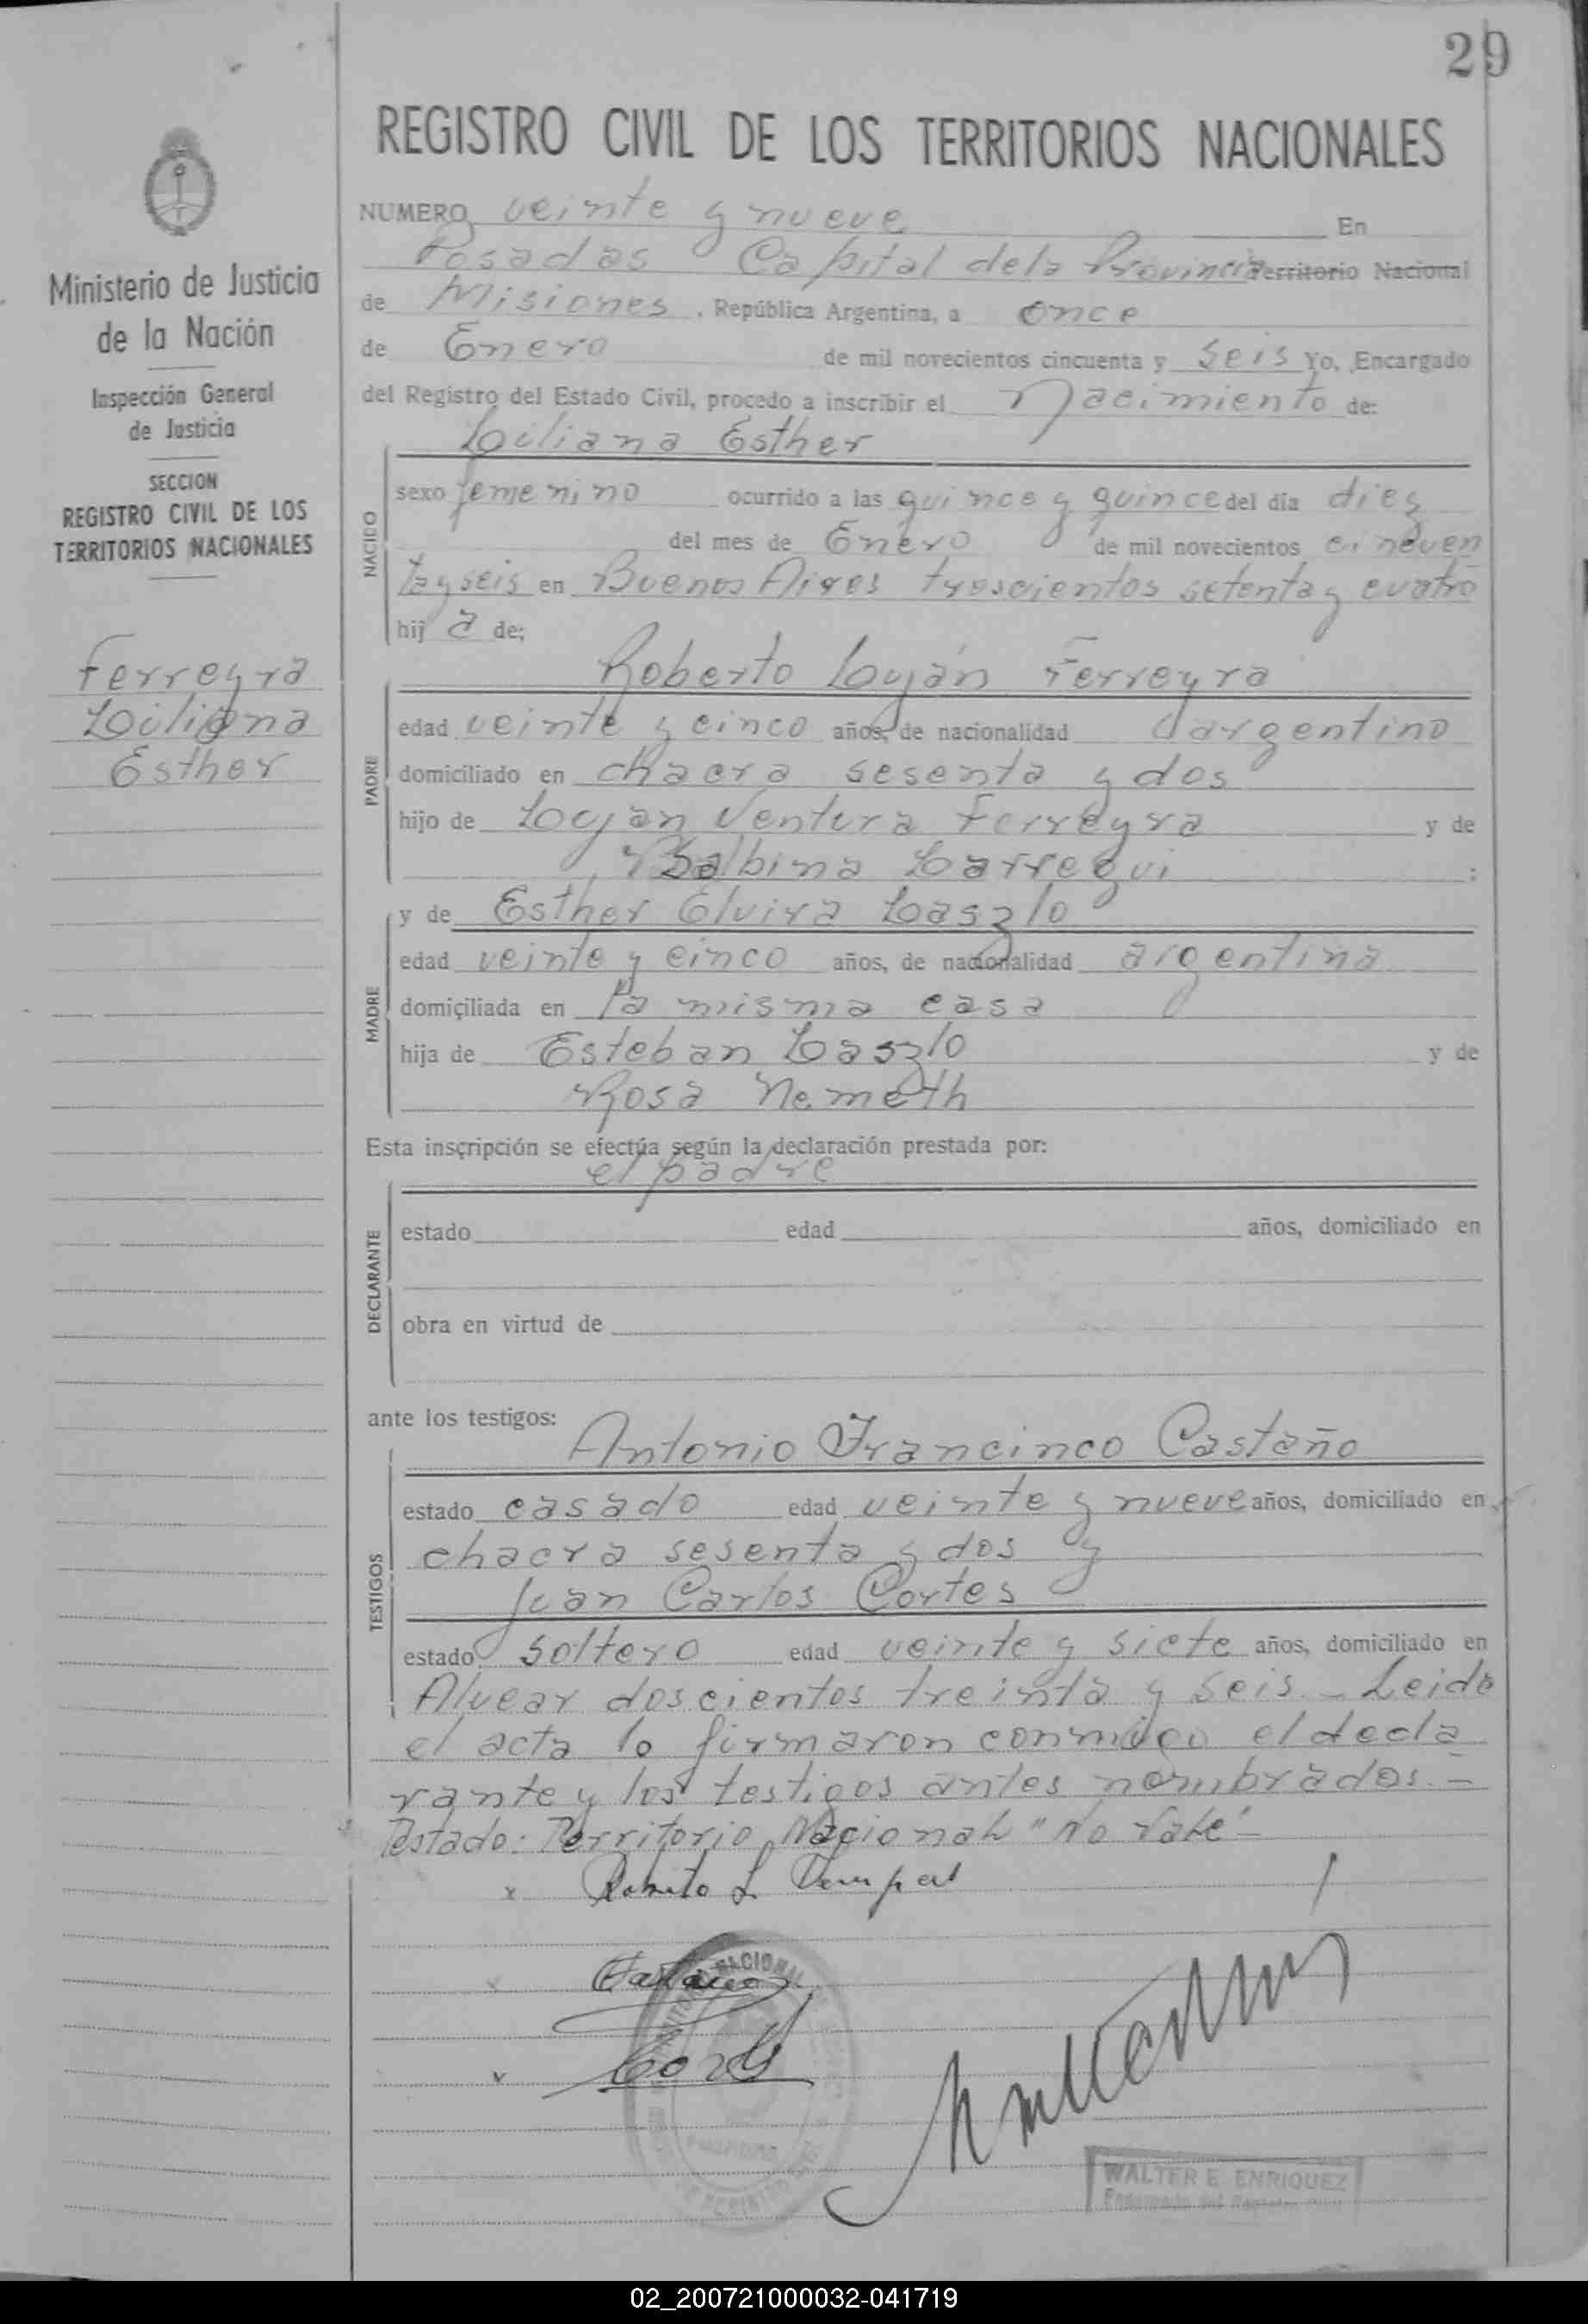 29
REGISTRO CIVIL DE LOS TERRITORIOS NACIONALES
Ministerio de Justicia
de la Nación
Inspección General
de Justicia
SECCION
REGISTRO CIVIL DE LOS
TERRITORIOS NACIONALES
Ferreyra
Liliana
Esther
NUMERO veinte y nueve En
Posadas Capital de la Provincia Territorio Nacional
de Misiones, República Argentina, a once
de Enero de mil novecientos cincuenta y seis Yo, Encargado
del Registro del Estado Civil, procedo a inscribir el Nacimiento de:
Liliana Esther
NACIO
sexo femenino ocurrido a las quince y quince del día diez
del mes de Enero de mil novecientos cincuen
ta y seis en Buenos Aires trescientos setenta y cuatro
hij a de:
Roberto Luján Ferreyra
PADRE
edad veinte y cinco años, de nacionalidad argentino
domiciliado en chacra sesenta y dos
hijo de Lujan Ventura Ferreyra y de
Balbina Larregui :
y de Esther Elvira Laszlo
MADRE
edad veinte y cinco años, de nacionalidad argentina
domiciliada en la misma casa
hija de Esteban Laszlo y de
Rosa Nemeth
Esta inscripción se efectúa según la declaración prestada por:
el padre
DECLARANTE
estado edad años, domiciliado en
obra en virtud de
ante los testigos:
Antonio Francinco Castaño
TESTIGOS
estado casado edad veinte y nueve años, domiciliado en
chacra sesenta y dos y
Juan Carlos Cortes
estado soltero edad veinte y siete años, domiciliado en
Alvear doscientos treinta y seis.- Leida
el acta la firmaron conmigo el decla
rante y los testigos antes nombrados.-
Testado: Territorio Nacional "No Vale"-
Roberto L.
WALTER E. ENRIQUEZ
Encargado del Registro Civil
02_200721000032-041719